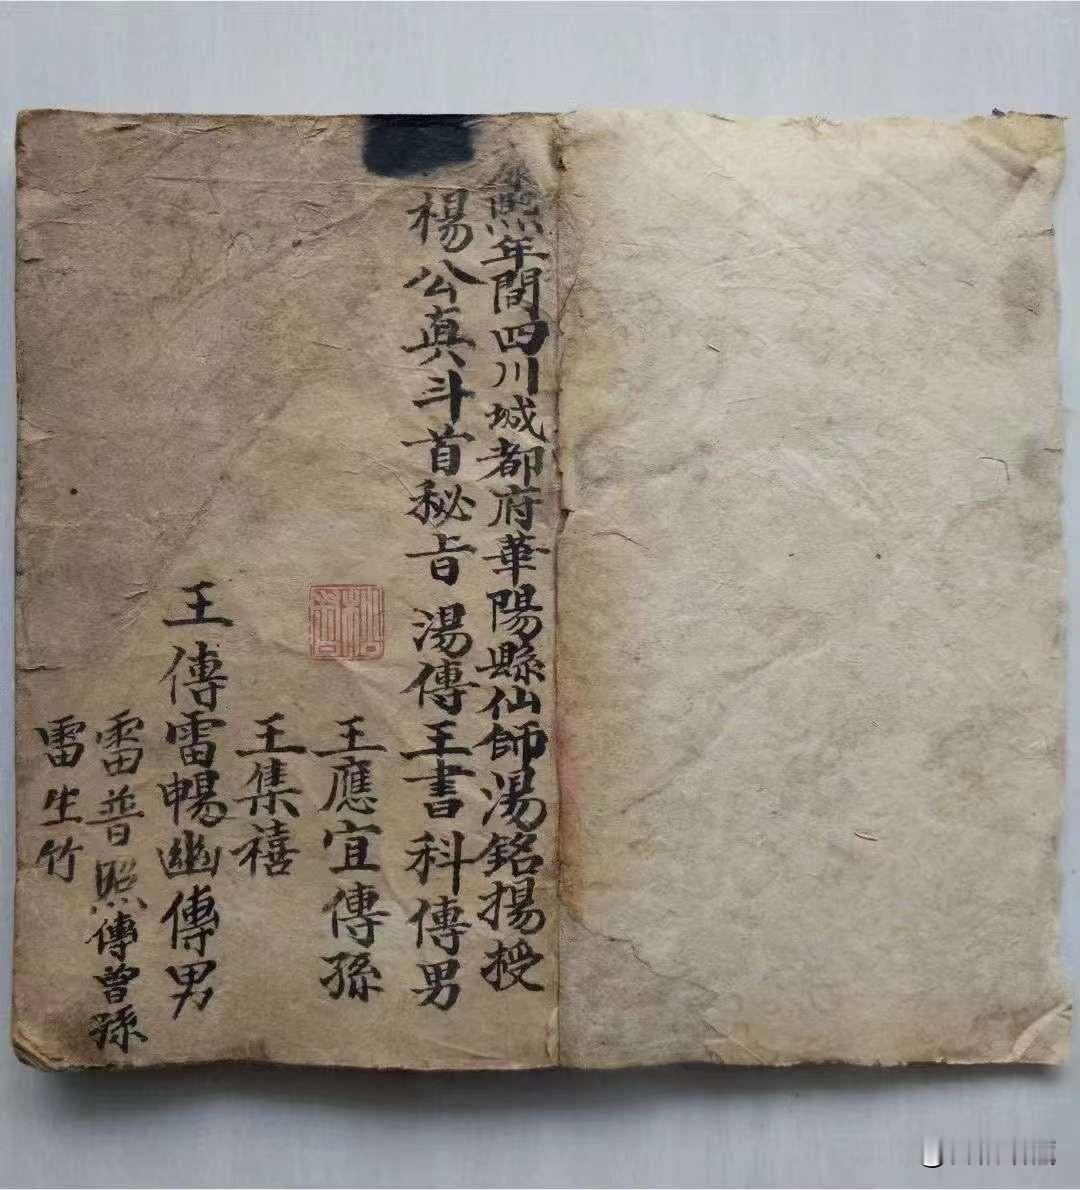 康熙年間四川城都府華陽縣仙師湯銘揚授
楊公真斗首秘旨湯傳王書科傳男
王應宜傳孫
王集禧
王傳雷暢幽傳男
雷普照傳曾孫
雷生竹